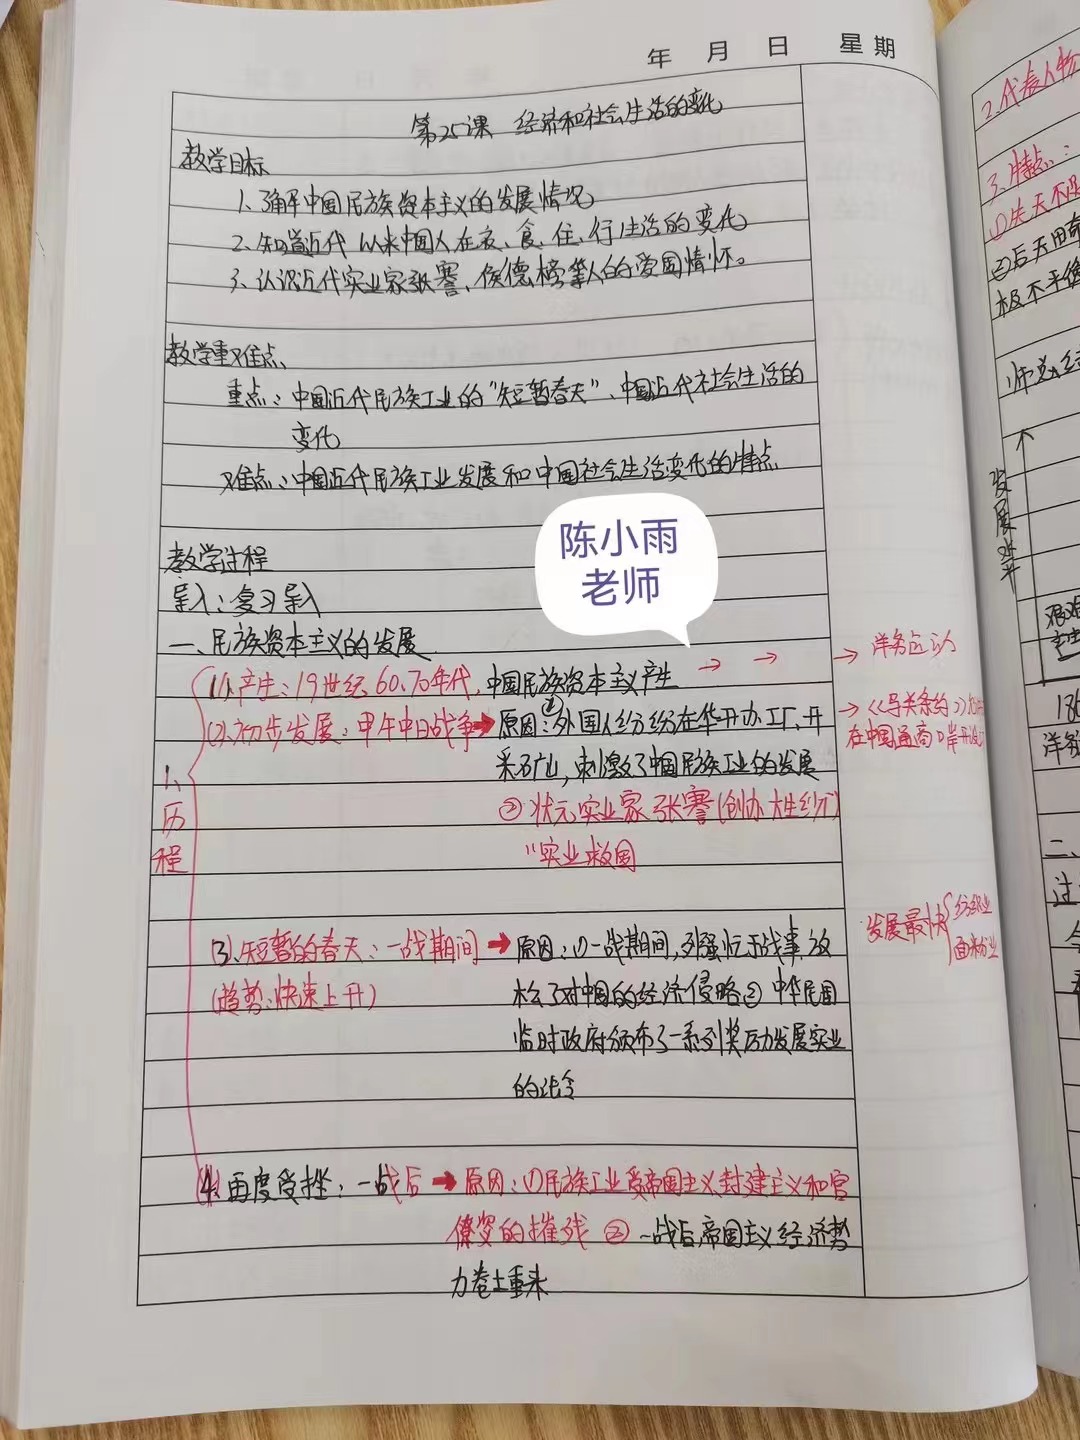 年 月 日 星期
第25课 经济和社会生活的变化
教学目标
1、了解中国民族资本主义的发展情况
2、知道近代以来中国人在衣、食、住、行生活的变化
3、认识近代实业家张謇、侯德榜等人的爱国情怀。
教学重难点
重点：中国近代民族工业的“短暂春天”、中国近代社会生活的
变化
难点：中国近代民族工业发展和中国社会生活变化的特点
陈小雨
老师
教学过程
导入：复习导入
一、民族资本主义的发展
1、历程
(1)、产生：19世纪60、70年代，中国民族资本主义产生 → → → 洋务运动
(2)、初步发展：甲午中日战争➡原因：①外国人纷纷在华开办工厂、开
采矿山，刺激了中国民族工业的发展
→《马关条约》
在中国通商口岸开设
②状元实业家张謇(创办大生纱厂)
“实业救国
(3)、短暂的春天：一战期间➡原因：(1)一战期间，列强忙于战事，放
(趋势：快速上升)
松了对中国的经济侵略② 中华民国
临时政府颁布了一系列奖励发展实业
的法令
发展最快{纺织业
面粉业
(4)再度受挫：一战后➡原因：(1)民族工业受帝国主义、封建主义和官
僚资的摧残 ②一战后，帝国主义经济势
力卷土重来
2.代表人物
3、特点：
①先天不足
极不平衡
发展水平
二、